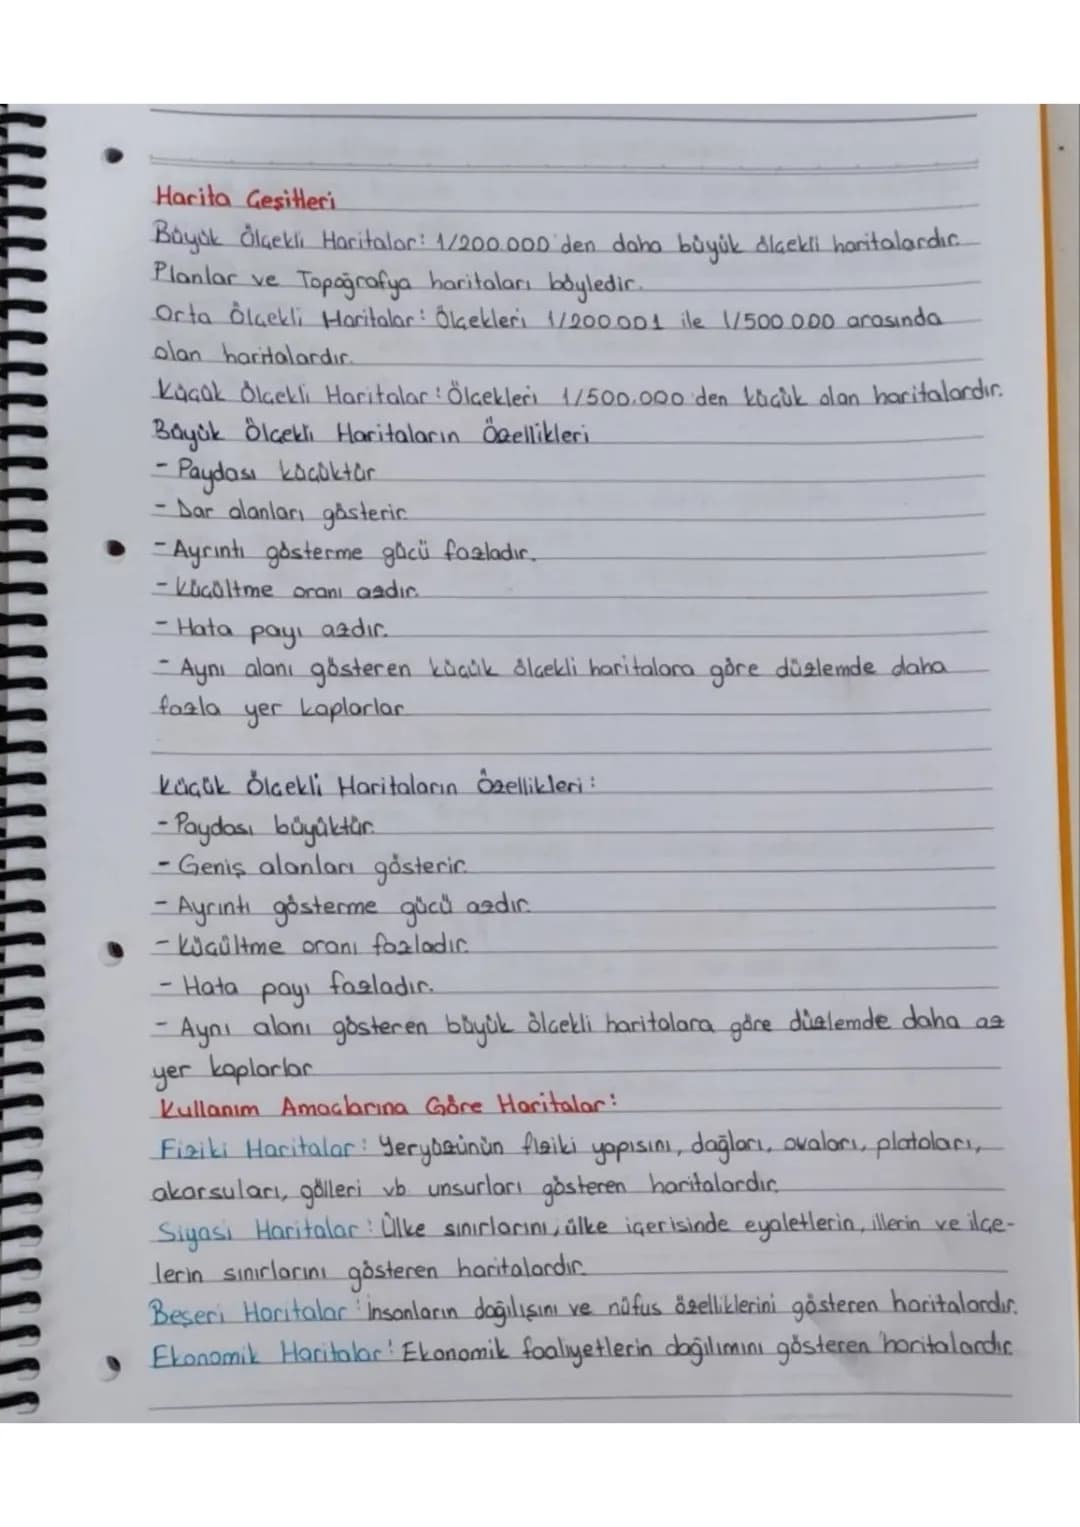 Harita Çeşitleri
Büyük Ölçekli Haritalar: 1/200.000'den daha büyük ölçekli haritalardır.
Planlar ve Topoğrafya haritaları böyledir.
Orta Ölçekli Haritalar: Ölçekleri 1/200.001 ile 1/500.000 arasında
olan haritalardır.
Küçük Ölçekli Haritalar: Ölçekleri 1/500.000'den küçük olan haritalardır.
Büyük Ölçekli Haritaların Özellikleri
- Paydası küçüktür
- Dar alanları gösterir.
- Ayrıntı gösterme gücü fazladır.
- Küçültme oranı azdır.
- Hata payı azdır.
- Aynı alanı gösteren küçük ölçekli haritalara göre düzlemde daha
fazla yer kaplarlar
Küçük Ölçekli Haritaların Özellikleri:
- Paydası büyüktür.
- Geniş alanları gösterir.
- Ayrıntı gösterme gücü azdır.
- Küçültme oranı fazladır.
- Hata payı fazladır.
- Aynı alanı gösteren büyük ölçekli haritalara göre düzlemde daha az
yer kaplarlar
Kullanım Amaçlarına Göre Haritalar:
Fiziki Haritalar: Yeryüzünün fiziki yapısını, dağları, ovaları, platoları,
akarsuları, gölleri vb. unsurları gösteren haritalardır.
Siyasi Haritalar: Ülke sınırlarını, ülke içerisinde eyaletlerin, illerin ve ilçe-
lerin sınırlarını gösteren haritalardır.
Beşeri Haritalar: İnsanların dağılışını ve nüfus özelliklerini gösteren haritalardır.
Ekonomik Haritalar: Ekonomik faaliyetlerin dağılımını gösteren haritalardır.